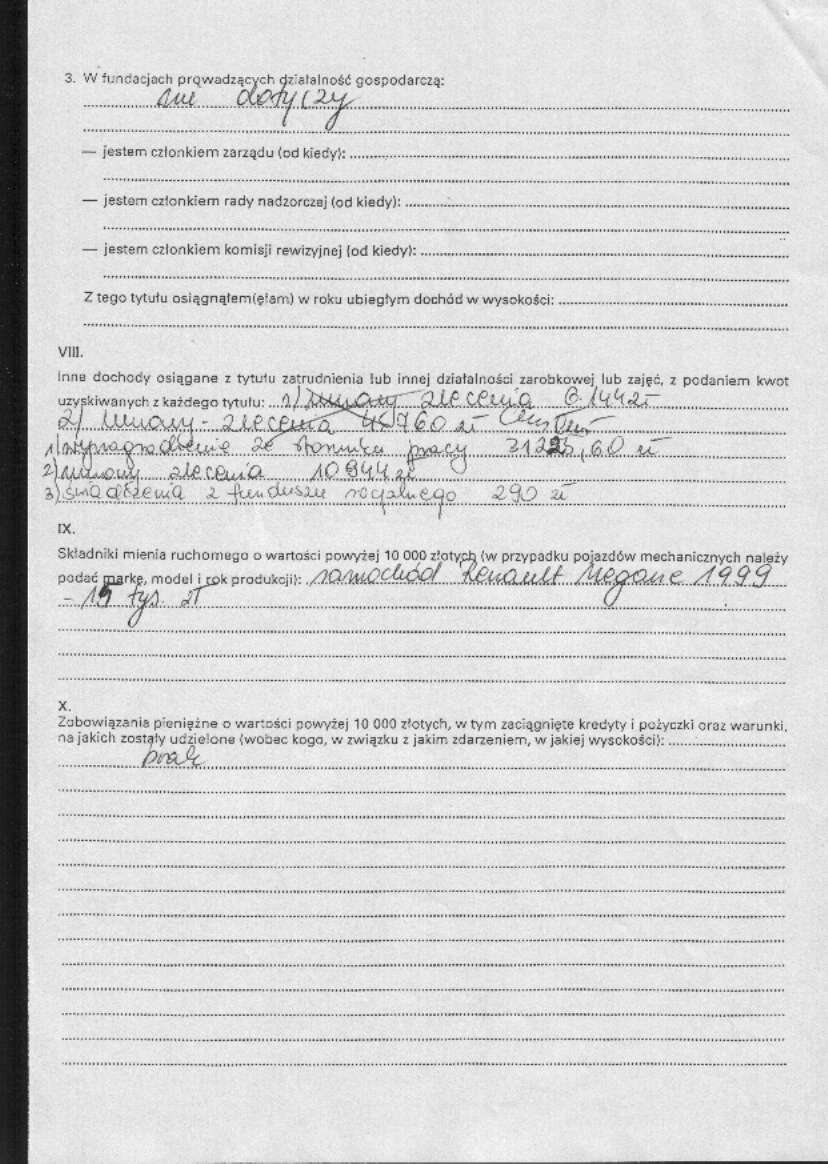 3. W fundacjach prowadzących działalność gospodarczą:
nie dotyczy
— jestem członkiem zarządu (od kiedy):
— jestem członkiem rady nadzorczej (od kiedy):
— jestem członkiem komisji rewizyjnej (od kiedy):
Z tego tytułu osiągnąłem(ęłam) w roku ubiegłym dochód w wysokości:
VIII.
Inne dochody osiągane z tytułu zatrudnienia lub innej działalności zarobkowej lub zajęć, z podaniem kwot
uzyskiwanych z każdego tytułu: 1) umowy zlecenia 6.144 zł
2) umowy - zlecenia zł
1) wynagrodzenie ze stosunku pracy 31225,60 zł
2) umowy zlecenia 10944 zł
3) świadczenia z funduszu socjalnego 290 zł
IX.
Składniki mienia ruchomego o wartości powyżej 10 000 złotych (w przypadku pojazdów mechanicznych należy
podać markę, model i rok produkcji): samochód Renault Megane 1999
- 15 tys. zł
X.
Zobowiązania pieniężne o wartości powyżej 10 000 złotych, w tym zaciągnięte kredyty i pożyczki oraz warunki,
na jakich zostały udzielone (wobec kogo, w związku z jakim zdarzeniem, w jakiej wysokości):
brak